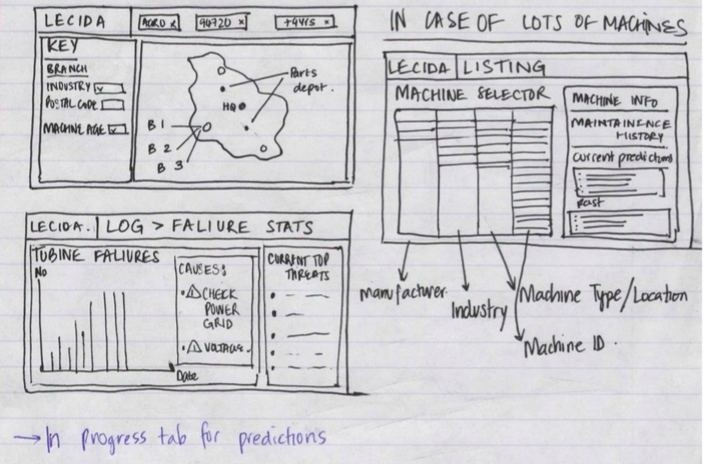 LECIDA
AGRO x
94720 x
+4yrs x
KEY
BRANCH
INDUSTRY
POSTAL CODE
MACHINE AGE
Parts
depot.
HQ
B 1
B 2
B 3
IN CASE OF LOTS OF MACHINES
LECIDA LISTING
MACHINE SELECTOR
MACHINE INFO
MAINTAINENCE
HISTORY
Current predictions
Past
manufacturer.
Industry
Machine Type/Location
Machine ID.
LECIDA. LOG > FALIURE STATS
TUBINE FALIURES
No
Date
CAUSES:
CHECK
POWER
GRID
VOLTAGE.
CURRENT TOP
THREATS
→ In progress tab for predictions